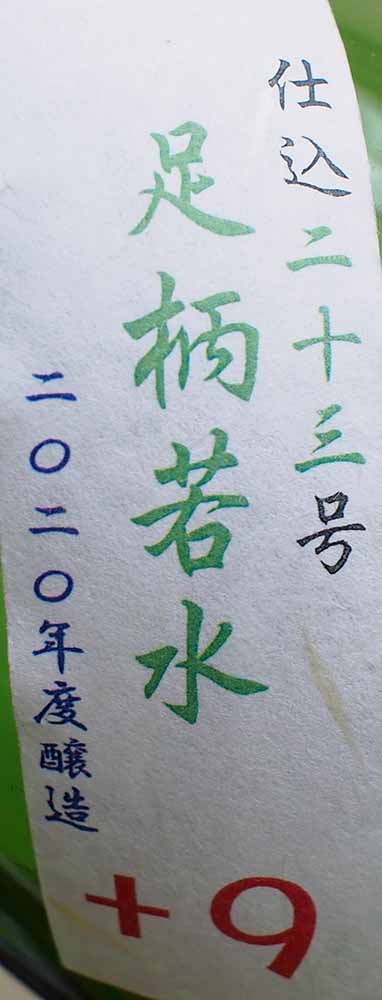 仕込二十三号
足柄若水
二〇二〇年度醸造
+9